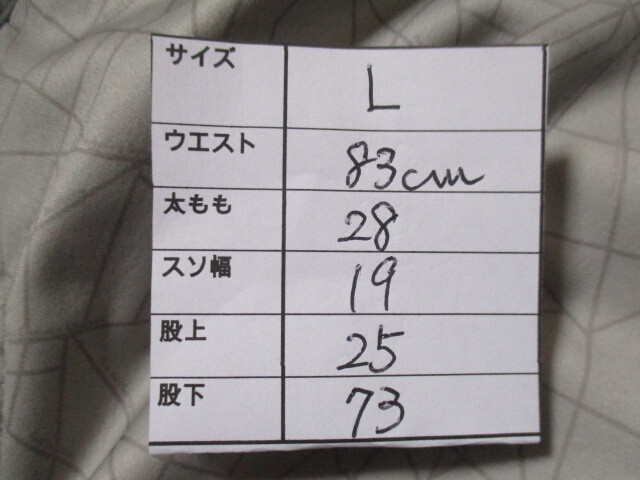 サイズ L
ウエスト 83cm
太もも 28
スソ幅 19
股上 25
股下 73